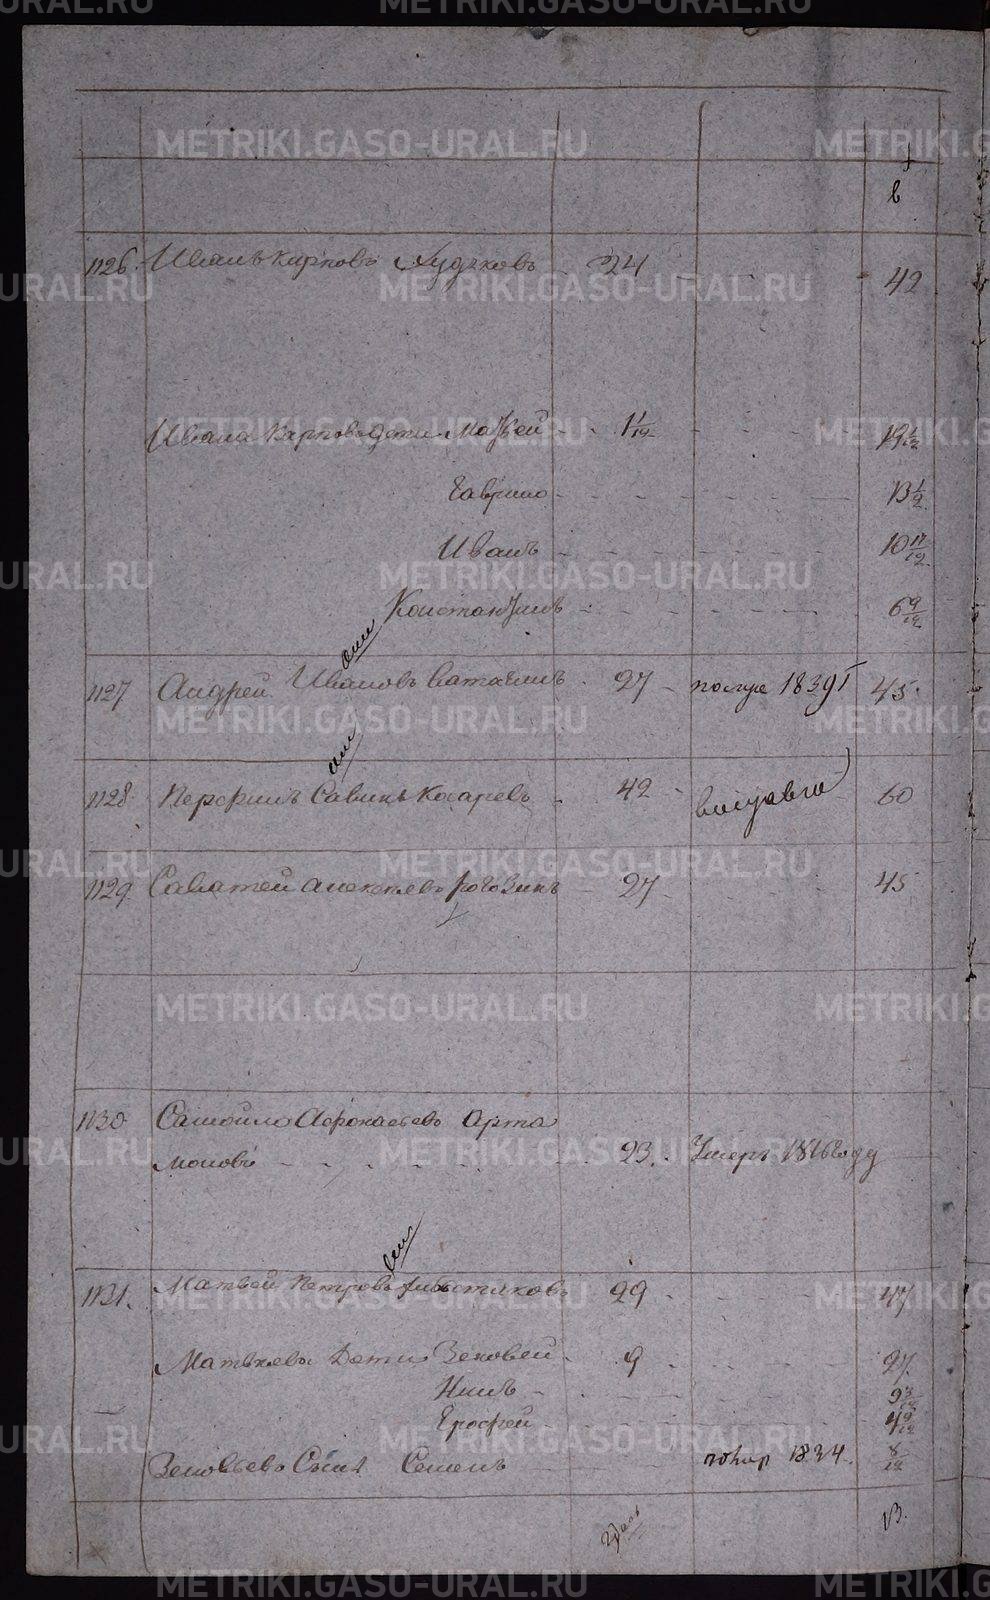 METRIKI.GASO-URAL.RU
в
1126. Иванъ Карповъ Худяковъ 24 42
Ивана Карпова дети Матвей 1 1/12 19 1/12
Гаврило 13 1/2
Иванъ 10 11/12
Константинъ 6 9/12
1127 Андрей Ивановъ 27 1839 45
1128 Перфилъ Савинъ Косаревъ 42 60
1129 Саватей Алексеевъ Роговинъ 27 45
1130 Самойло Афонасьевъ Арта
моновъ 23. Умеръ 1816 году
1131. Матвей Петровъ 29 47
Матвеевы Дети Зеновей 9 27
Нилъ 9
Ерофей 4 9/12
Зеновьевъ Сынъ Семенъ 1834. 8/12
13.